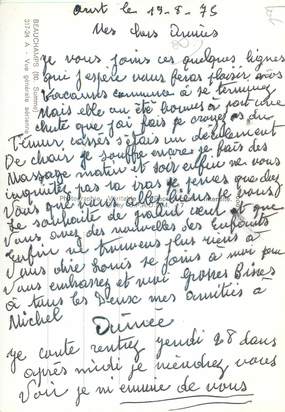 Ault le 19-8-75
Mes chers Amies
je vous joins ces quelques lignes
qui j'espère vous feras plaisir nos
vacances commence à se terminez
Mais elle on été bonnes à part une
chute que j'ai fais je croyez du
Fémur cassés s'étais un décolement
De chair je souffre encore je fais des
Massage matin et soir enfin ne vous
inquiétez pas sa iras je penses que chez
vous que vous allez bien je vous
le souhaite de grand cœur et que
vous avez des nouvelles des enfants
Enfin ne trouvens plus rien à
vous dire Louis se joins à moi pour
vous embrassez et voici Grosses Bises
à tous les Deux mes amitiés à
Michel
je conte rentrez jeudi 28 dans
après midi je viendrez vous
voir je m ennuie de vous
BEAUCHAMPS (80 Somme)
31234 A - Vue générale aérienne